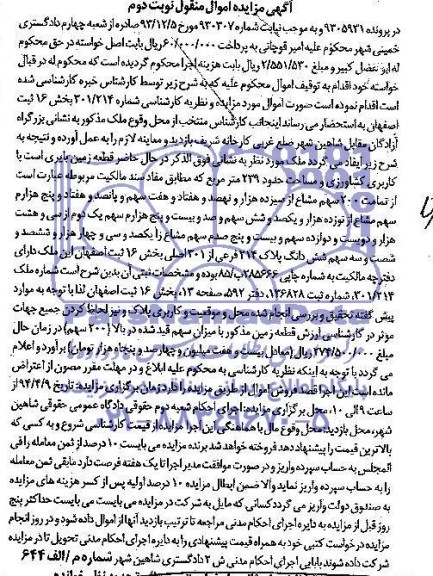 آگهی مزایده اموال منقول نوبت دوم
در پرونده ۹۳۰۵۹۳۱ و به موجب نیابت شماره ۹۳۰۳۰۷ مورخ ۹۳/۱۲/۵ صادره از شعبه چهارم دادگستری
خمینی شهر محکوم علیه امیر قوچانی به پرداخت ۶۰/۰۰۰/۰۰۰ ریال بابت اصل خواسته در حق محکوم
له ابوالفضل کبیر و مبلغ ۲/۵۵۱/۵۳۰ ریال بابت هزینه اجرا محکوم گردیده است که محکوم له در قبال
خواسته خود اقدام به توقیف اموال محکوم علیه که به شرح زیر توسط کارشناس خبره کارشناسی شده
است اقدام نموده است صورت اموال مورد مزایده و نظریه کارشناسی شماره ۳۰۱/۲۱۴ بخش ۱۶ ثبت
اصفهان به استحضار می رساند اینجانب کارشناس منتخب از محل وقوع ملک مذکور به نشانی بزرگراه
آزادگان مقابل شاهین شهر ضلع غربی کارخانه شریف بازدید و معاینه لازم را به عمل آورده و نتیجه به
شرح زیر ایفاد می گردد ملک مورد نظر به نشانی فوق الذکر در حال حاضر قطعه زمین بایری است با
کاربری کشاورزی و مساحت حدود ۲۳۹ متر مربع که مطابق مفاد سند مالکیت مربوطه عبارت است
از تمامت ۲۰۰ سهم مشاع از سیزده هزار و نهصد و هفتاد و هفت سهم و پانصد و هفتاد و پنج هزارم
سهم مشاع از نوزده هزار و یکصد و شش سهم و صد و بیست و پنج هزارم سهم یک دوم از سی و هشت
هزار و دویست و دوازده سهم و بیست و پنج صدم سهم مشاع زا یکصد و سی و چهار هزار و ششصد و
شصت و سه سهم شش دانگ پلاک ۲۱۴ فرعی از ۳۰۱ اصلی بخش ۱۶ ثبت اصفهان این ملک دارای
دفترچه مالکیت به شماره چاپی ۲۸۵۶۶۶ پ/۸۵ بوده و مشخصات ثبتی آن بدین شرح است شماره ملک
۳۰۱/۲۱۴، شماره ثبت ۱۳۶۸۲۸، دفتر ۵۹۲، صفحه ۱۳، بخش ۱۶ ثبت اصفهان لذا با توجه به موارد
پیش گفته تحقیق و بررسی انجام شده محل و موقعیت و کاربری پلاک و نیز لحاظ کردن جمیع جهات
موثر در کارشناسی ارزش قطعه زمین مذکور با میزان سهم قید شده در بالا (۲۰۰ سهم) در زمان حال
مبلغ ۲۷۴/۵۰۰/۰۰۰ ریال (معادل بیست و هفت میلیون و چهارصد و پنجاه هزار تومان) برآورد و اعلام
می گردد با توجه به اینکه نظریه کارشناسی به محکوم علیه ابلاغ و در مهلت مقرر مصون از اعتراض
مانده است این اجرا قصد فروش اموال از طریق مزایده را دارد زمان برگزاری مزایده: تاریخ ۹۴/۴/۹ از
ساعت ۹ الی ۱۰، محل برگزاری مزایده: اجرای احکام شعبه دوم حقوقی دادگاه عمومی حقوقی شاهین
شهر، محل بازدید: محل وقوع مال با هماهنگی این اجرا مزایده از قیمت کارشناسی شروع و به کسی که
بالاترین قیمت را پیشنهاد دهد فروخته خواهد شد برنده مزایده می بایست ۱۰ درصد از ثمن معامله را فی
المجلس به حساب سپرده واریز و در صورت موافقت مدیر اجرا تا یک هفته فرصت دارد مابقی ثمن معامله
را به حساب سپرده واریز نماید والا ضمن ابطال مزایده ۱۰ درصد اولیه پس از کسر هزینه های مزایده
به صندوق دولت واریز می گردد کسانی که مایل به شرکت در مزایده می بایست می بایست حداکثر پنج
روز قبل از مزایده به دایره اجرای احکام مدنی مراجعه تا ترتیب بازدید آنها از اموال داده شود و در روز انجام
مزایده درخواست کتبی خود به همراه قیمت پیشنهادی را به دایره اجرای احکام مدنی تحویل تا در مزایده
شرکت داده شوند بابایی اجرای احکام مدنی ش ۲ دادگستری شاهین شهر شماره م/الف ۶۴۴